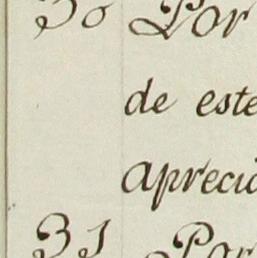 30 Por
de este
apreci
31 Por